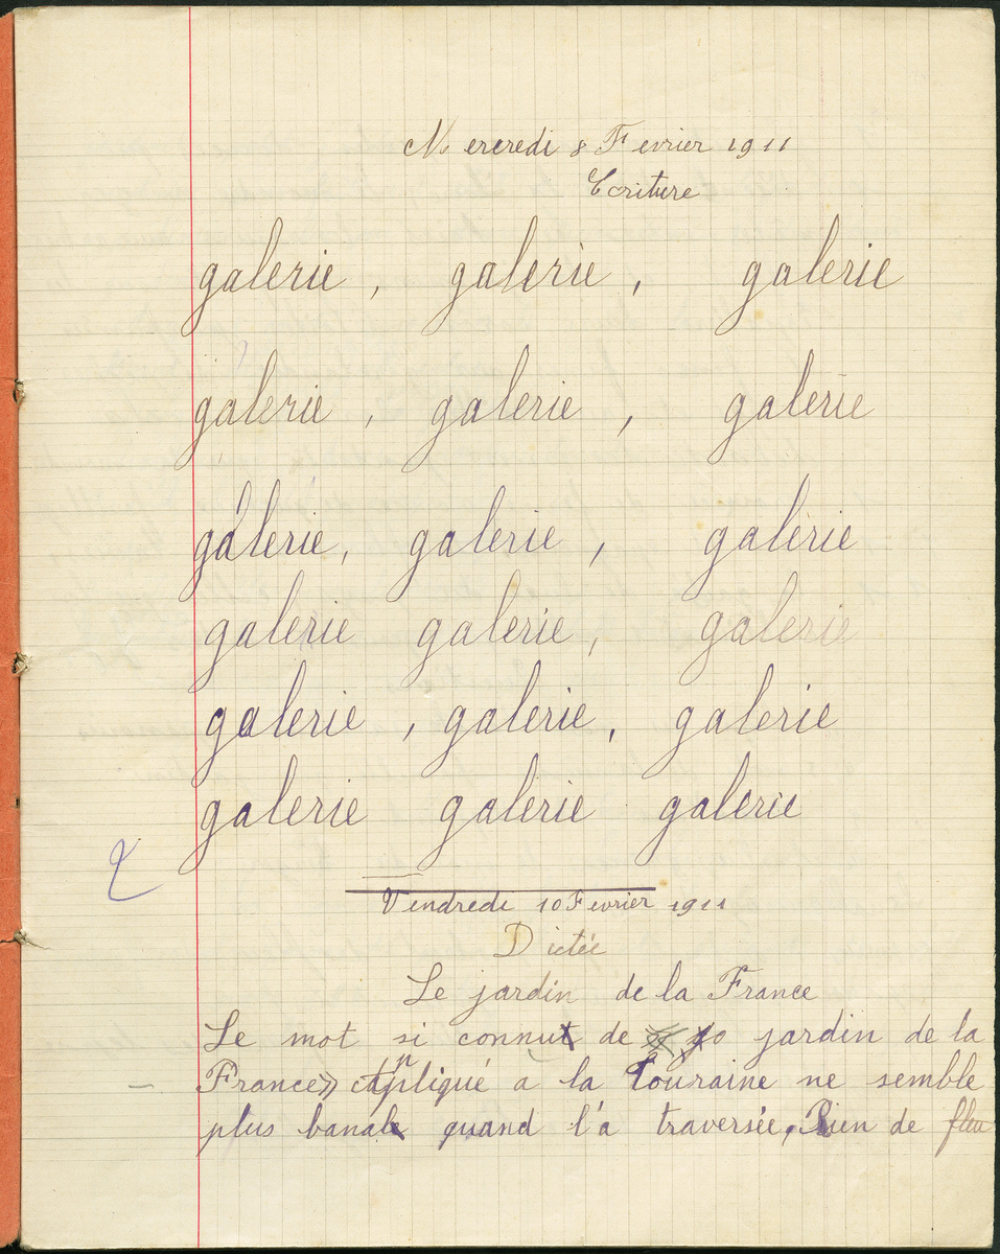 Mercredi 8 Fevrier 1911
Ecriture
galerie, galerie, galerie
galerie, galerie, galerie
galerie, galerie, galerie
galerie galerie, galerie
galerie, galerie, galerie
galerie galerie galerie
Vendredi 10 Fevrier 1911
Dictée
Le jardin de la France
Le mot si connu de jardin de la
France» appliqué a la Touraine ne semble
plus banal quand l'a traversée, Rien de fleu